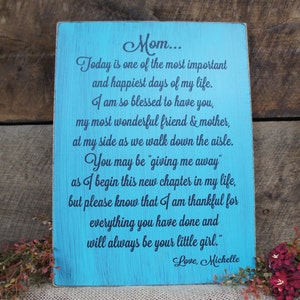 Mom...
Today is one of the most important
and happiest days of my life.
I am so blessed to have you,
my most wonderful friend & mother,
at my side as we walk down the aisle.
You may be "giving me away"
as I begin this new chapter in my life,
but please know that I am thankful for
everything you have done and
will always be your little girl."
Love, Michelle